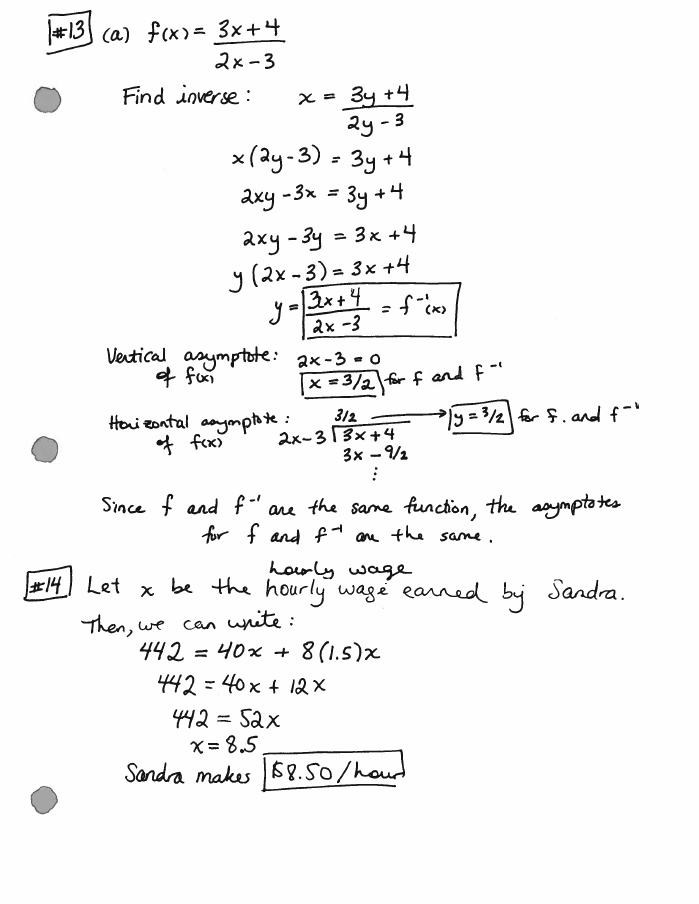 #13 (a) f(x) = (3x+4)/(2x-3)
Find inverse: x = (3y+4)/(2y-3)
x(2y-3) = 3y+4
2xy-3x = 3y+4
2xy-3y = 3x+4
y(2x-3) = 3x+4
y = (3x+4)/(2x-3) = f⁻¹(x)
Vertical asymptote: 2x-3=0
of f(x) x=3/2 for f and f⁻¹
Horizontal asymptote: 3/2 → y=3/2 for f. and f⁻¹
of f(x) 2x-3 ) 3x+4
3x-9/2
⋮
Since f and f⁻¹ are the same function, the asymptotes
for f and f⁻¹ are the same.
hourly wage
#14 Let x be the hourly wage earned by Sandra.
Then, we can write:
442 = 40x + 8(1.5)x
442 = 40x + 12x
442 = 52x
x = 8.5
Sandra makes $8.50/hour